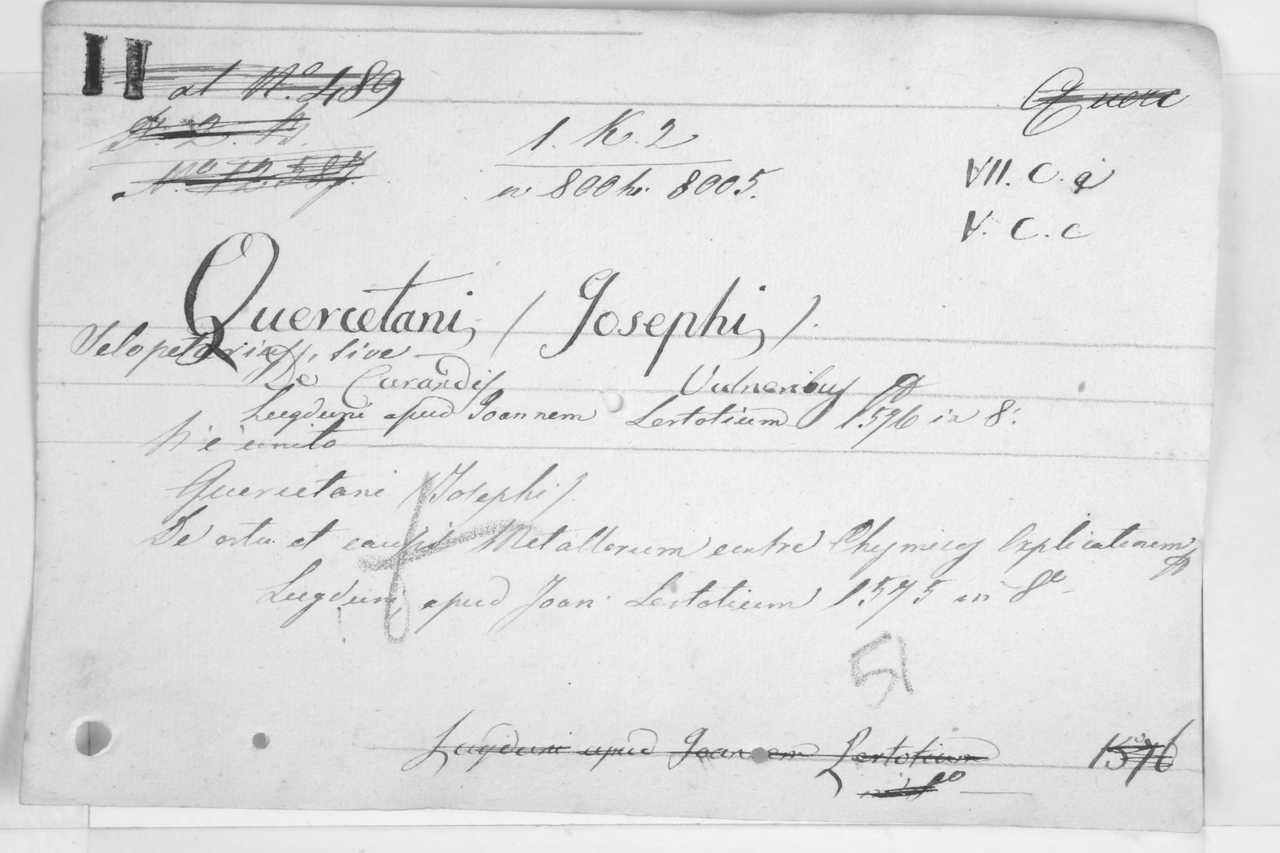 II al N.º 489
F. 2. B.
N.º 12. 587.
1. K. 2
n. 800 h. 8005.
Querc
VII. C. q
V. C. c
Quercetani, (Josephi,).
Sclopetarius, sive
De Curandis Vulneribus &
Lugduni apud Joannem Lertotium 1576 in 8:
Vi è unito
Quercetani (Josephi)
De ortu et causis Metallorum contra Chymicos Explicationem &
Lugduni, apud Joan: Lertotium 1575 in 8º
51
Lugduni apud Joannem Lertotium 1576
in 8º